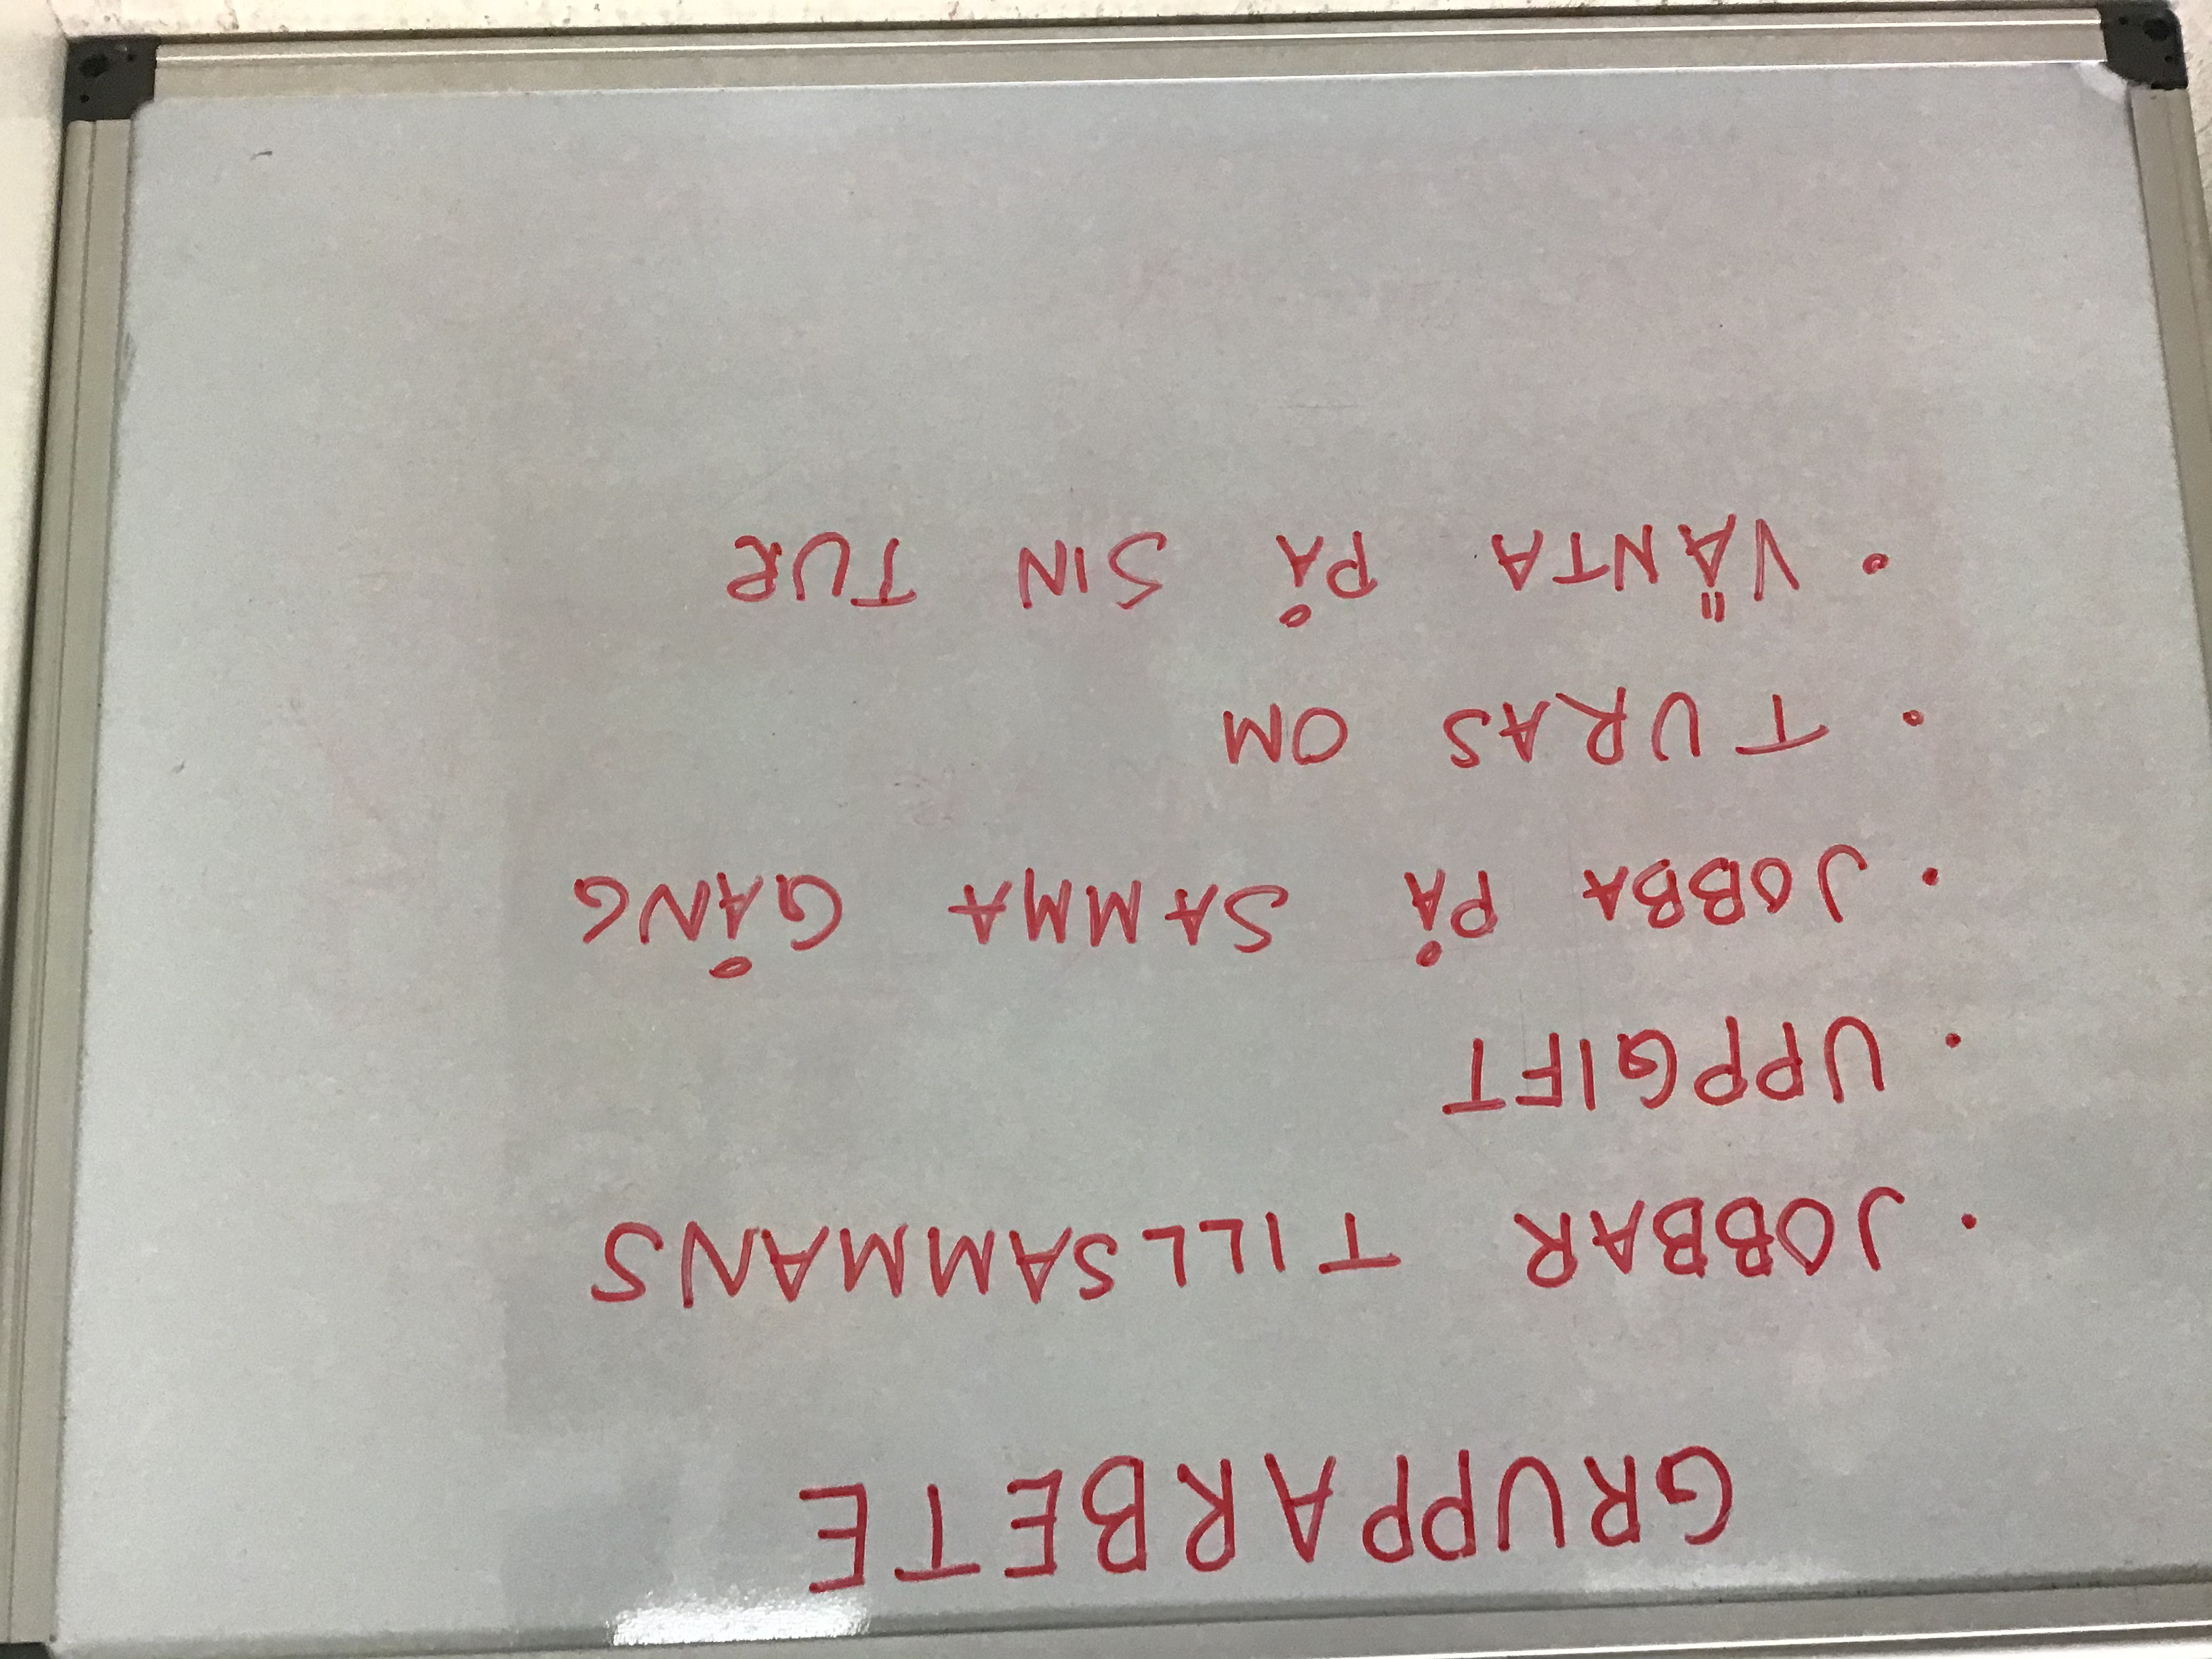 GRUPPARBETE
· JOBBAR TILLSAMMANS
· UPPGIFT
· JOBBA PÅ SAMMA GÅNG
· TURAS OM
· VÄNTA PÅ SIN TUR